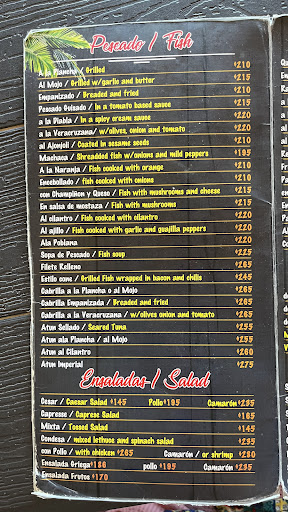 Pescado / Fish
A la Plancha / Grilled $210
Al Mojo / Grilled w/garlic and butter $215
Empanizado / Breaded and fried $210
Pescado Guisado / In a tomato based sauce $215
a la Diabla / In a spicy cream sauce $220
a la Veracruzana / w/olives, onion and tomato $220
al Ajonjoli / Coated in sesame seeds $210
Machaca / Shreadded fish w/onions and mild peppers $185
A la Naranja / Fish cooked with orange $210
Encebollado / fish cooked with onions $210
con Champiñon y Queso / Fish with mushrooms and cheese $215
En salsa de mostaza / Fish with mushrooms $215
Al cilantro / Fish cooked with cilantro $220
Al ajillo / Fish cooked with garlic and guajilla peppers $220
Ala Poblana $220
Sopa de Pescado / Fish soup $225
Filete Relleno $235
Estilo cone / Grilled Fish wrapped in bacon and chilis $245
Cabrilla a la Plancha o al Mojo $265
Cabrilla Empanizada / Breaded and fried $265
Cabrilla a la Veracruzana / w/olives onion and tomato $265
Atun Sellado / Seared Tuna $255
Atun ala Plancha / al Mojo $255
Atun al Cilantro $260
Atun Imperial $275
Ensaladas / Salad
Cesar / Caesar Salad $145 Pollo $195 Camarón $235
Capresse / Caprese Salad $165
Mixta / Tossed Salad $145
Condesa / mixed lethuce and spinach salad $235
con Pollo / with chicken $265 Camarón / or shrimp $280
Ensalada Griega $166 pollo $195 Camarón $235
Ensalada Frutos $170